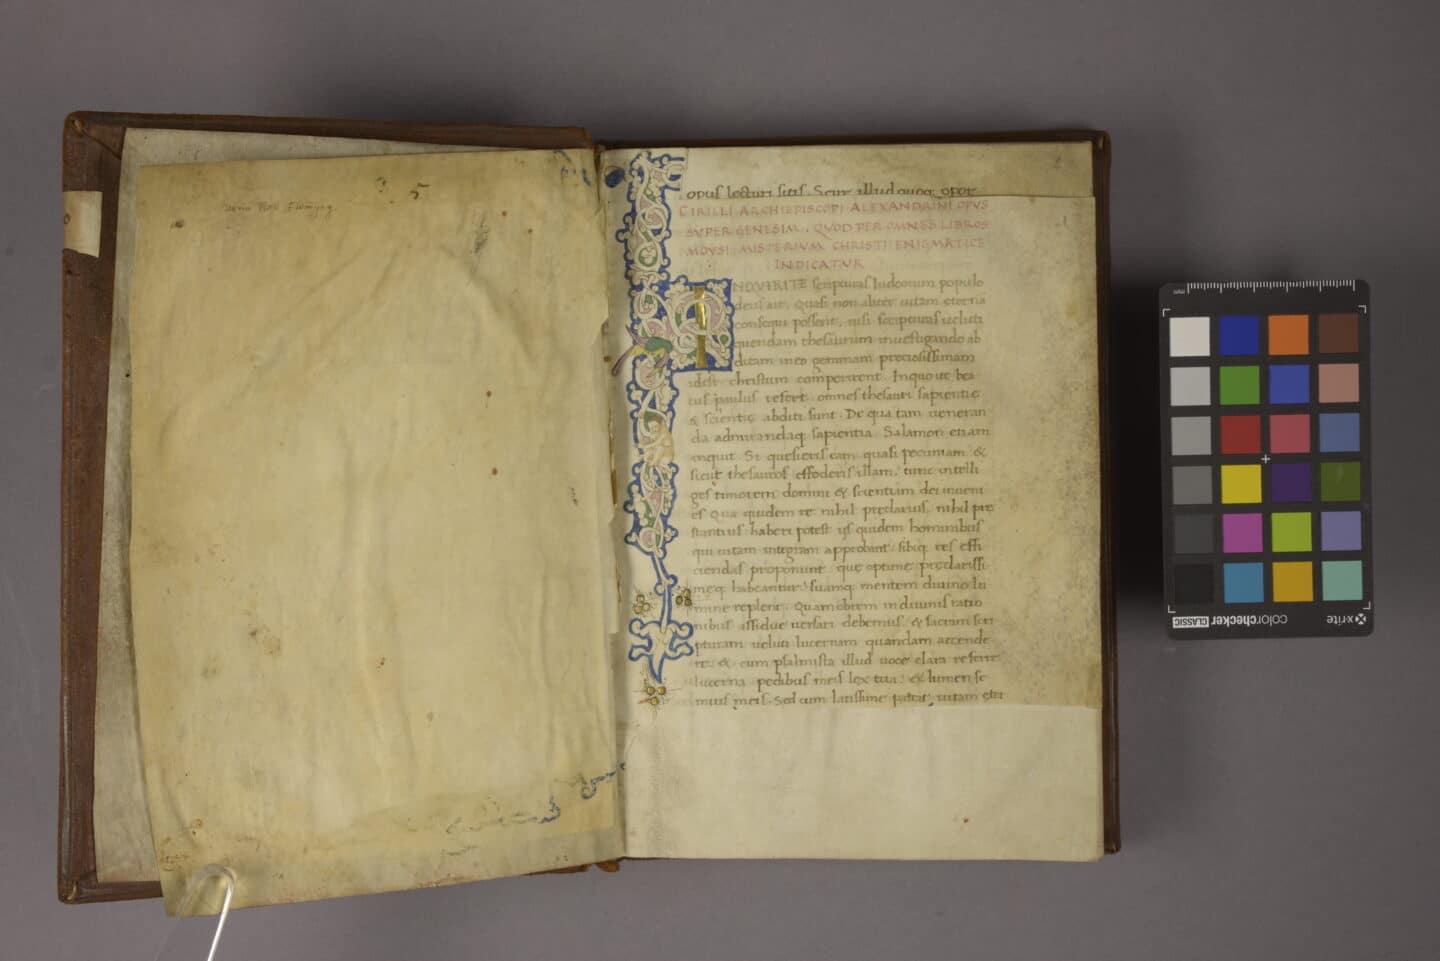 5
opus lecturi sitis. Scire illud quoq; opor
CIRILLI ARCHIEPISCOPI ALEXANDRINI OPUS
SUPER GENESIM. QUOD PER OMNES LIBROS
MOYSI MISTERIUM CHRISTI ENIGMATICE
INDICATUR
INQUIRITE scripturas Iudeorum populo
deus ait. Quasi non aliter uitam eterna
consequi possent, nisi scripturas ueluti
quendam thesaurum inuestigando ab
ditam in eo gemmam preciosissimam
idest christum comperirent. In quo ut bea
tus paulus refert omnes thesauri sapientie
& scientie abditi sunt. De qua tam ueneran
da admirandaq; sapientia Salamon etiam
inquit. Si quesieris eam quasi pecuniam &
sicut thesauros effoderis illam, tunc intelli
ges timorem domini & scientiam dei inueni
es Qua quidem re nihil preclarius, nihil pre
stantius haberi potest ijs quidem hominibus
qui uitam integram approbant sibiq; res effi
ciendas proponunt que optime preclarissi
meq; habeantur suamq; mentem diuino lu
mine replent. Quamobrem in diuinis ratio
nibus assidue uersari debemus & sacram scri
pturam ueluti lucernam quandam accende
re. & cum psalmista illud uoce clara referre
lucerna pedibus meis lex tua, & lumen se
mitis meis. Sed cum latissime pateat, uitam eter
mm
colorchecker CLASSIC
x-rite